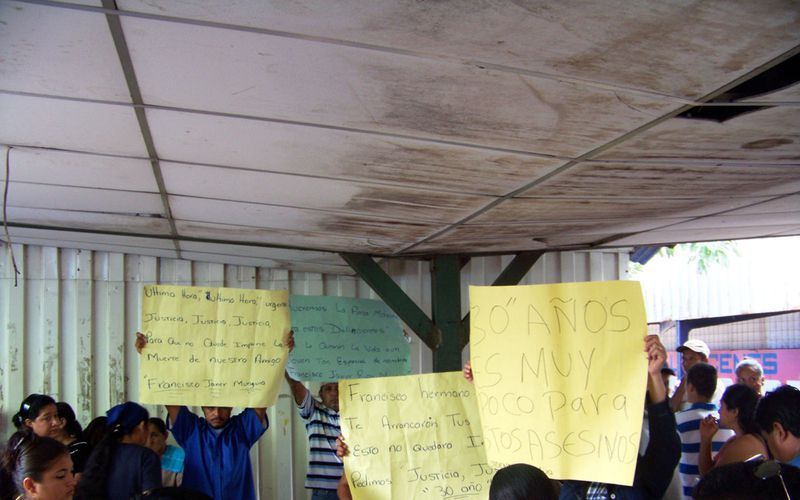 Ultimo Hora", "Ultimo Hora" urgente
Justicia, Justicia, Justicia
Para Que no Quede Impune La
Muerte de nuestro Amigo
"Francisco Javier Munguia
La Pena
estos Delincuentes"
Quitarón La Vida a un
Joven Tan Especial de nombre
Francisco Javier
Francisco hermano
Te Arrancarón Tus
Esto no Quedara
Pedimos "Justicia,
"30 año"
30" AÑOS
ES MUY
POCO Para
ESTOS ASESINOS